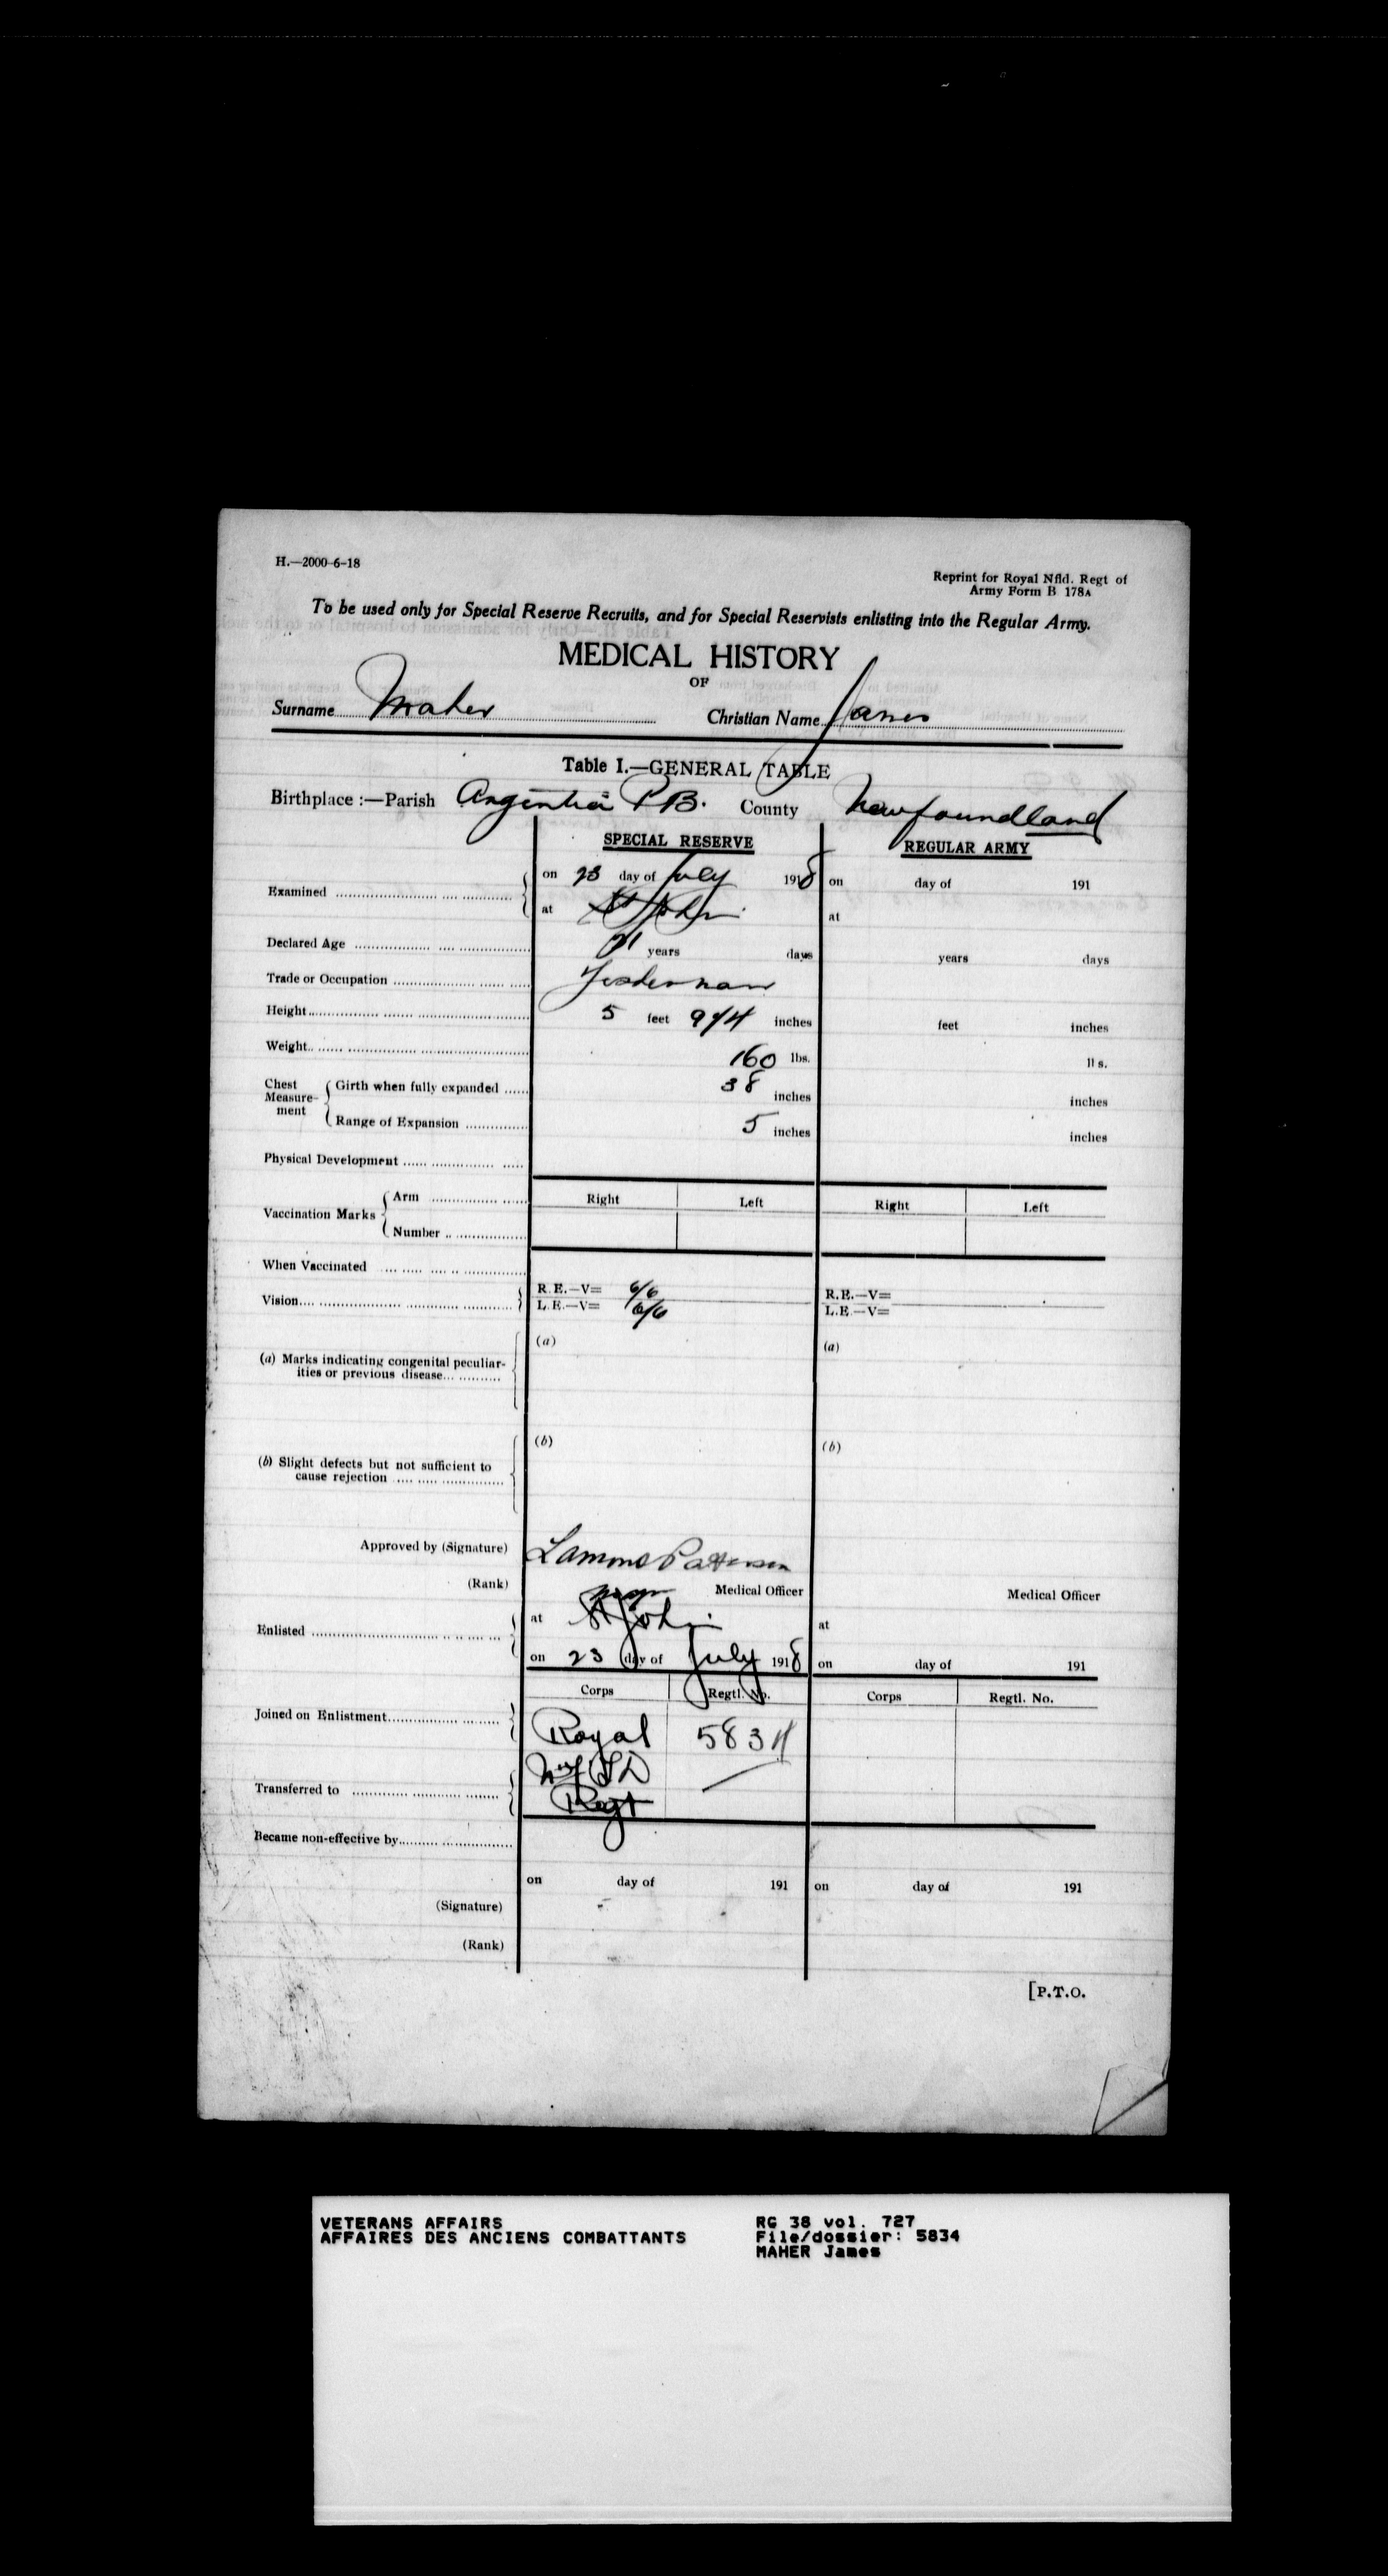 H.—2000-6-18
Reprint for Royal Nfld. Regt of
Army Form B 178A
To be used only for Special Reserve Recruits, and for Special Reservists enlisting into the Regular Army.
MEDICAL HISTORY
OF
Surname Maher Christian Name James
Table I.—GENERAL TABLE
Birthplace :—Parish Argentia P.B. County Newfoundland
SPECIAL RESERVE REGULAR ARMY
Examined on 23 day of July 1918 on day of 191
at St John's at
Declared Age 21 years days years days
Trade or Occupation Fisherman
Height 5 feet 9 1/4 inches feet inches
Weight 160 lbs. lbs.
Chest Measurement Girth when fully expanded 38 inches inches
Range of Expansion 5 inches inches
Physical Development
Vaccination Marks Arm Right Left Right Left
Number
When Vaccinated
Vision R.E.—V= 6/6 R.E.—V=
L.E.—V= 6/6 L.E.—V=
(a) Marks indicating congenital peculiar- (a) (a)
ities or previous disease
(b) Slight defects but not sufficient to (b) (b)
cause rejection
Approved by (Signature) Lamont Paterson
(Rank) Major Medical Officer Medical Officer
Enlisted at St John's at
on 23 day of July 1918 on day of 191
Corps Regtl. No. Corps Regtl. No.
Joined on Enlistment Royal 5834
Nfld
Transferred to Regt
Became non-effective by
on day of 191 on day of 191
(Signature)
(Rank)
[P.T.O.
VETERANS AFFAIRS RG 38 vol. 727
AFFAIRES DES ANCIENS COMBATTANTS File/dossier: 5834
MAHER James